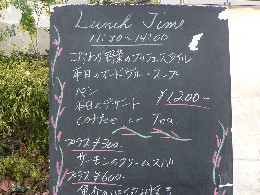 Lunch Time
11:30~14:00
こだわり野菜のブッフェスタイル
本日のオードヴル・スープ
パン
本日のデザート
¥1,200-
Coffee or Tea
プラス¥300-
サーモンのクリームスパ
プラス¥600-